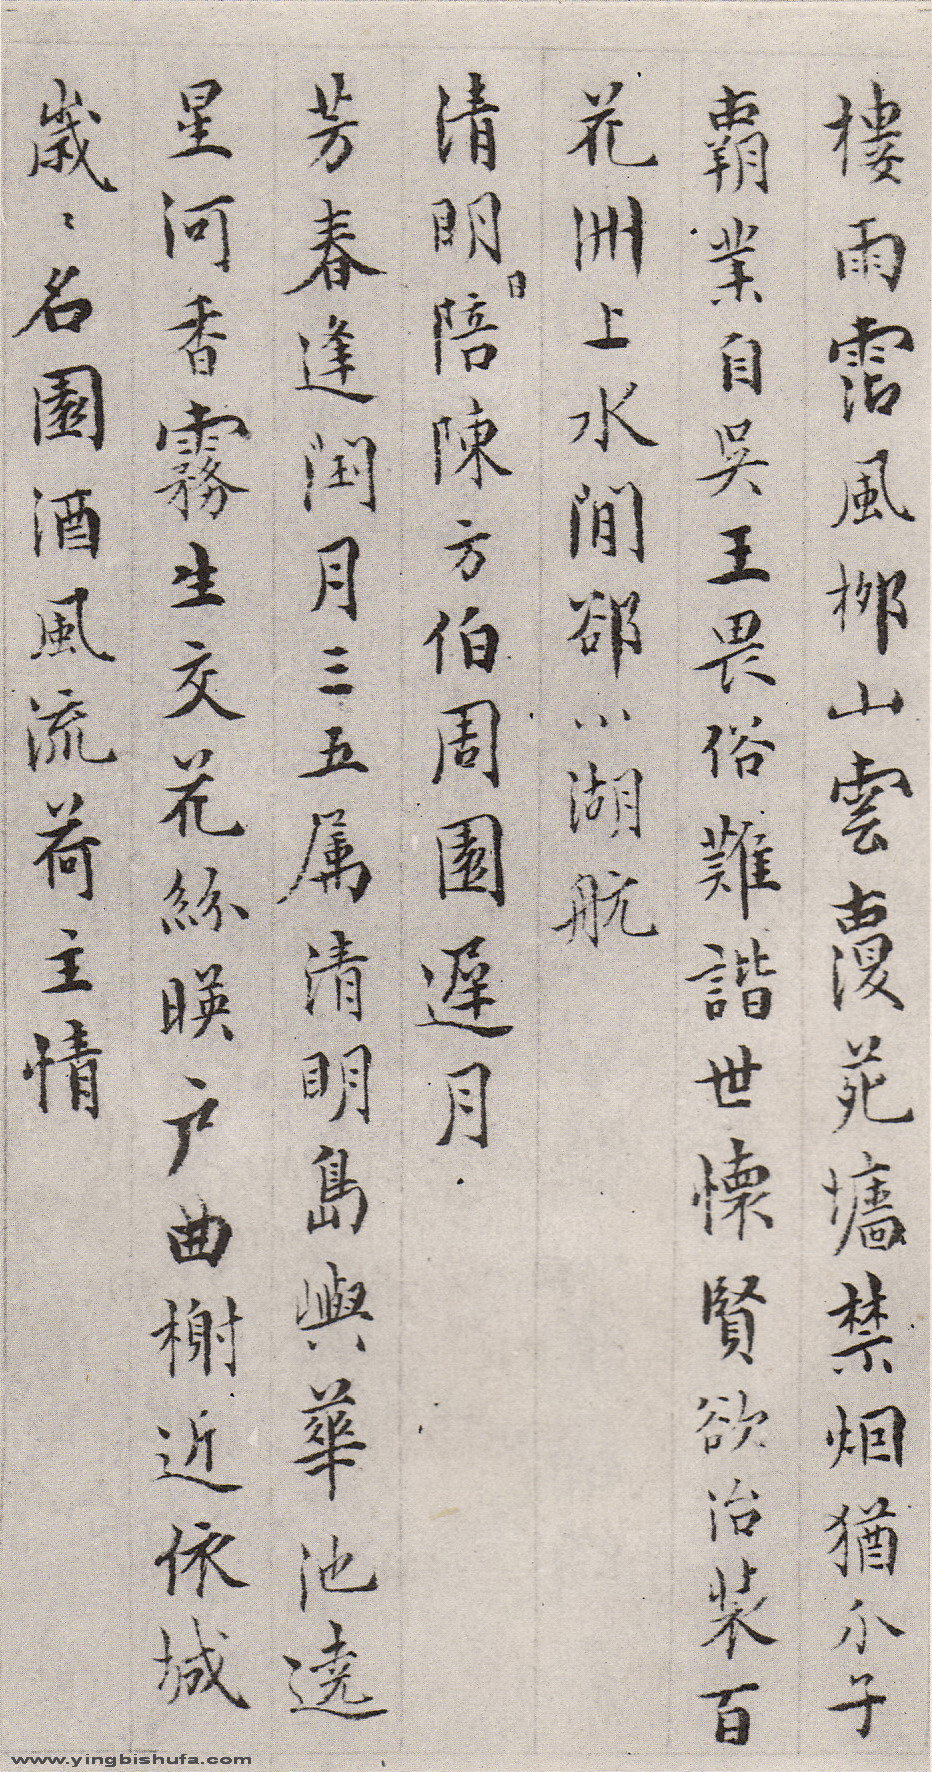 樓雨霑風栁山雲覆苑墻禁烟猶尒子
覇業自吳王畏俗難諧世懷賢欲治裝百
花洲上水閒郤小湖航
清明日陪陳方伯周園遲月
芳春逢閏月三五属清明島嶼華池遶
星河香霧生交花絲暎户曲榭近依城
歲〻名園酒風流荷主情
www.yingbishufa.com